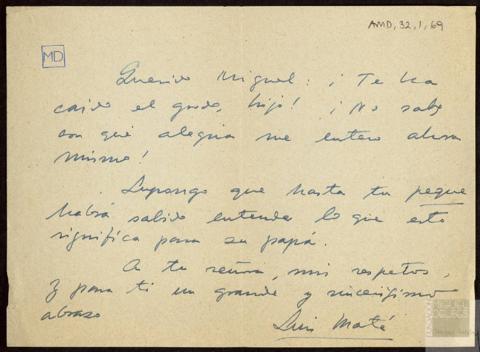 AMD, 32, 1, 69
MD
Querido Miguel: ¡Te ha
caido el gordo, hijo! ¡No sabes
con qué alegria me entero ahora
mismo!
Supongo que hasta tu peque
habrá sabido entender lo que esto
significa para su papá.
A tu señora, mis respetos,
y para ti un grande y sincerísimo
abrazo
Luis Maté